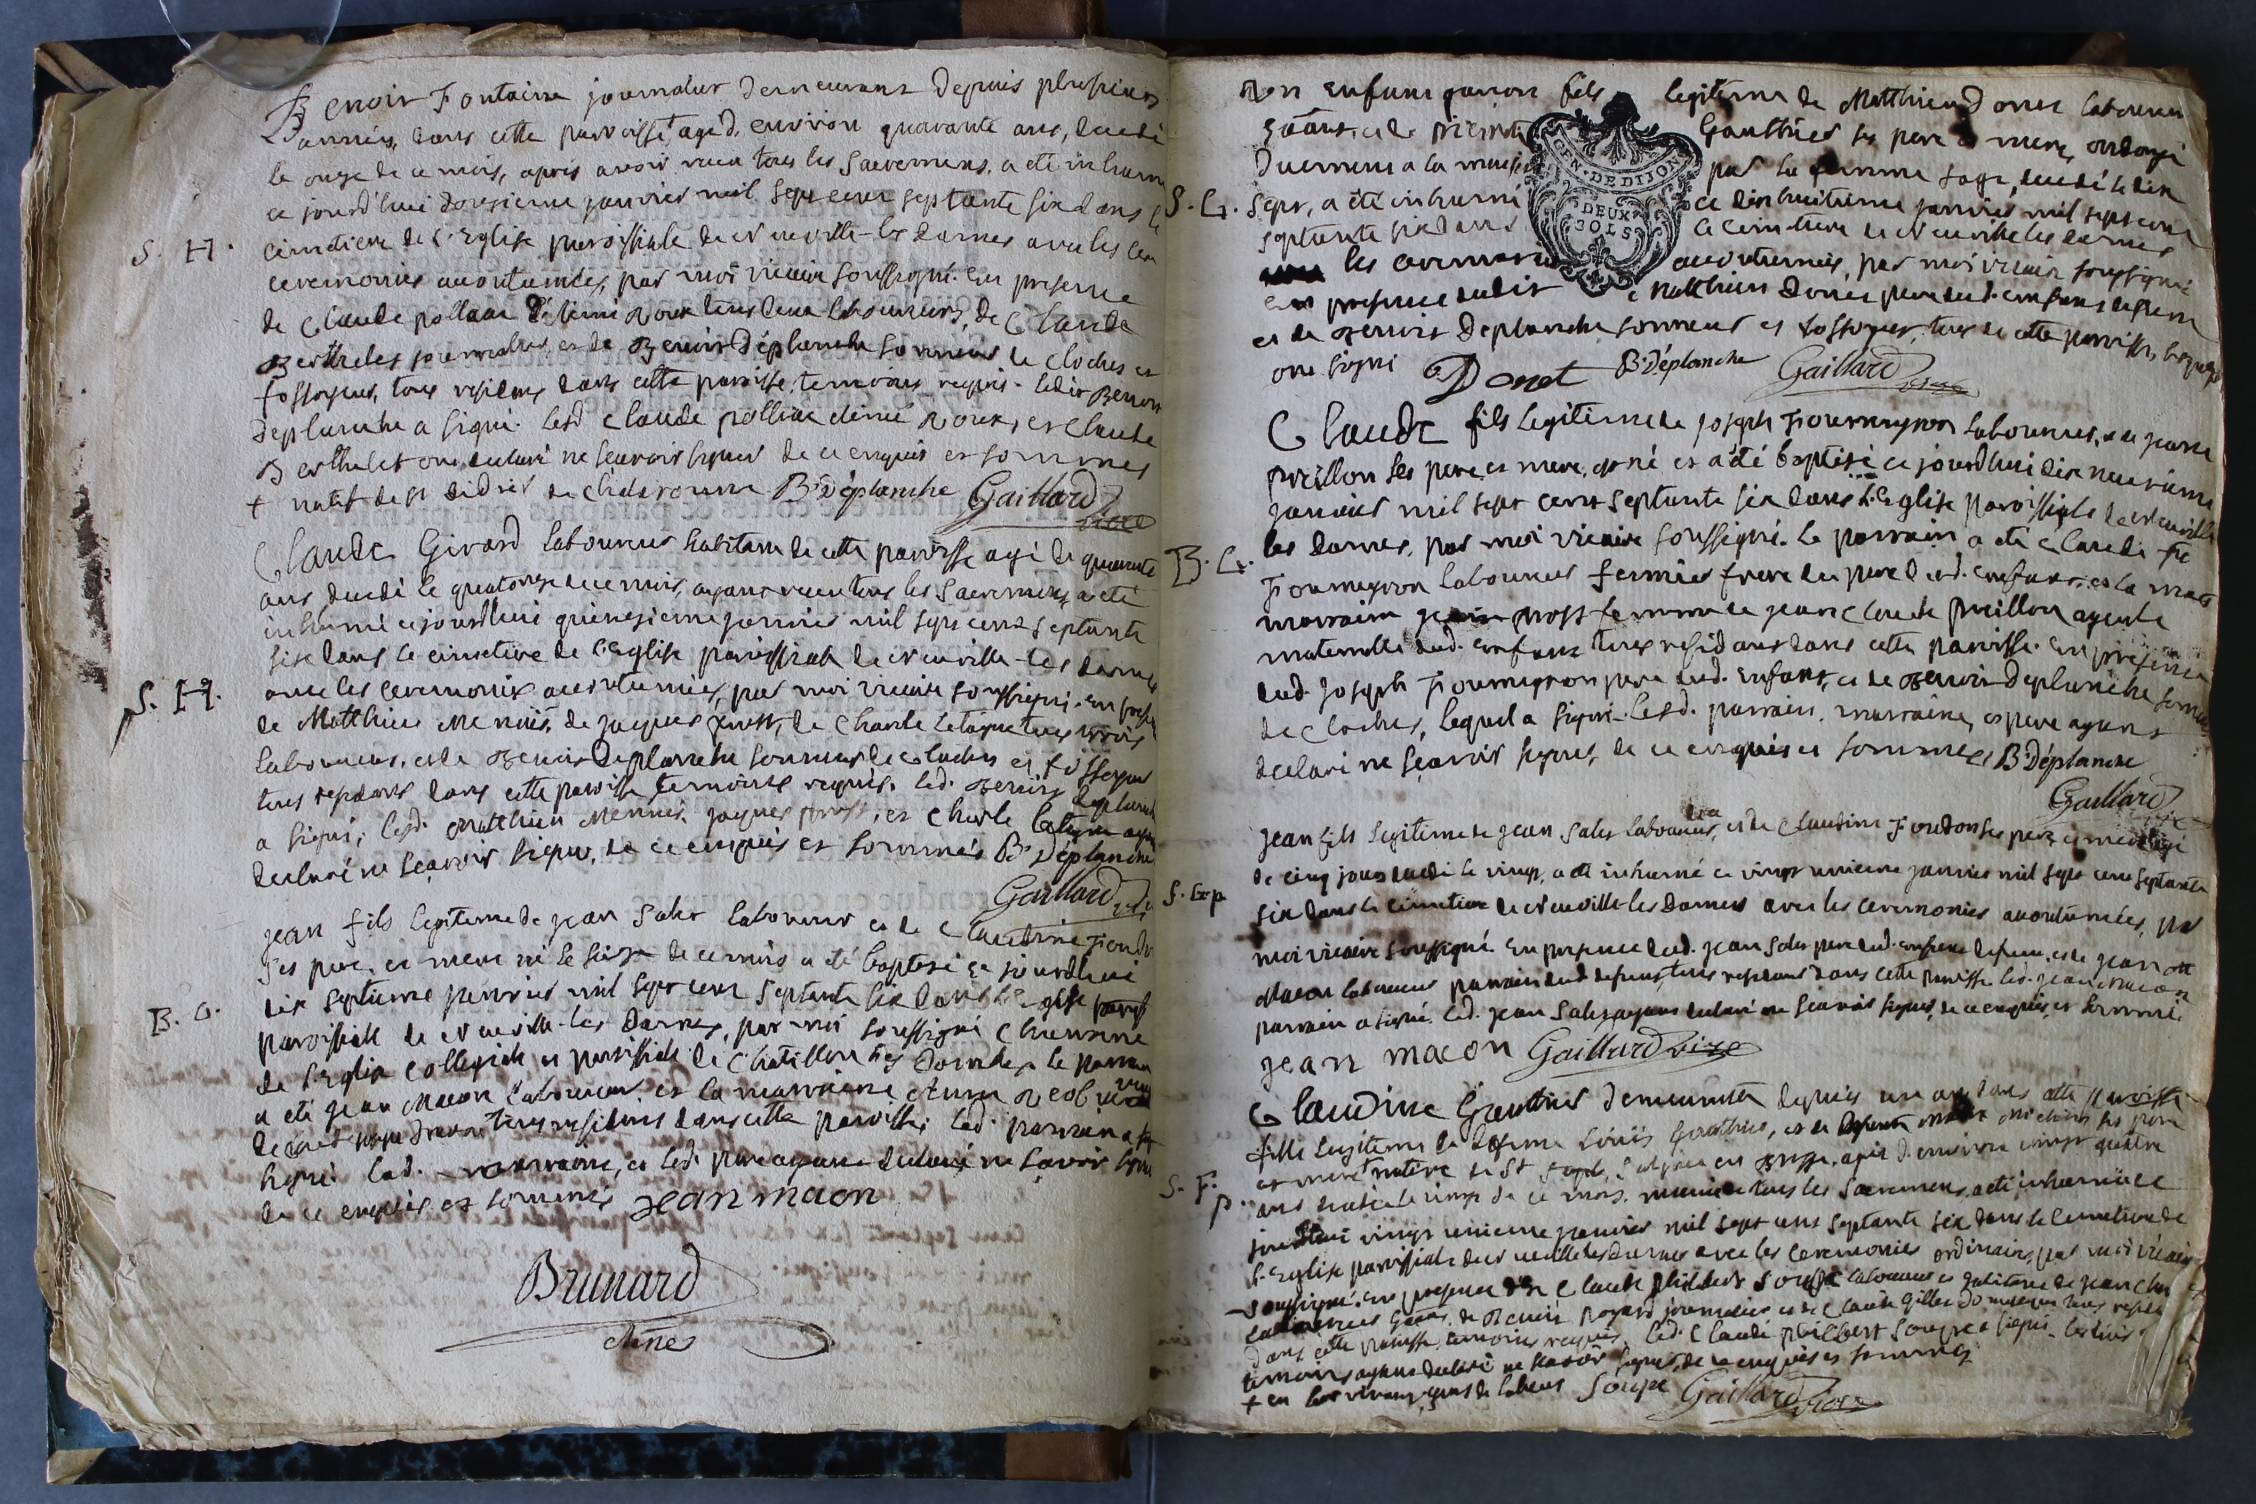 Benoit Fontaine journalier demeurant depuis plusieurs
années, dans cette parroisse agé d. environ quarante ans, decedé
le onze de ce mois, apres avoir recu tous les Sacremens, a eté inhumé
ce jourd'huï dousieme janvier mil sept cent septante six dans le
S. H.
cimetiere de l'Eglise paroissiale de Neuville-les Dames avec les
ceremonies acoutumées, par moi vicaire soussigné. En presence
de Claude polliac Denis Roux tous deux laboureurs, de Claude
Berthelet journalier, et de Benoit Déplanche sonneur de cloches et
fossoyeur, tous residens dans cette paroisse, temoins requis. ledit Benoit
Deplanche a signé. lesd. Claude polliac denis Roux, et Claude
Berthelet ont declaré ne scavoir signer de ce enquis et sommes
+ natif de st didier de Chalaronne B. Déplanche Gaillard vicre
Claude Girard laboureur habitant de cette paroisse agé de quarante
ans, decedé le quatorze de ce mois, ayant recu tous les Sacremens, a eté
inhumé ce jourdhui quinzieme janvier mil sept cent septante
six dans le cimetiere de l'Eglise paroissiale de Neuville-les dames
S. H.
avec les ceremonies acoutumées, par moi vicaire soussigné. En presence
de Matthieu Mennié, de jaques, de Charle Letique tous trois
laboureurs, et de Benoit Deplanche sonneur de cloches et fossoyeur
tous residans dans cette paroisse, temoins requis. led. Benoit Deplanche
a signé; lesd. Matthieu Mennié, jaques, et Charle Letique ayant
declaré ne scavoir signer, de ce enquis et sommés B. Déplanche
Gaillard vicre
jean fils legitime de jean Sales laboureur et de Claudine Fiondon
ses pere et mere né le seize de ce mois a eté baptisé ce jourdhui
dix septieme janvier mil sept cent septante six dans l'Eglise
B. G.
paroissiale de Neuville-les Dames, par moi soussigné Chanoine
de l'Eglise collegiale et paroissiale de Chatillon les Dombes. le parrain
a eté jean Macon laboureur, et la marraine
tous residens dans cette paroisse; led. parrain a
signé. lad. marraine, et led. pere ayant declaré ne scavoir signer
de ce enquis et sommés jean macon
Brunard
chne
Mon enfant garcon fils legitime de Matthieu Donet laboureur
Gauthier ses pere et mere, ondoyé
GEN. DE DIJON
DEUX
SOLS
Duement a la maison par la femme sage, decedé le dix
S. G.
sept, a été inhumé ce dixhuitieme janvier mil sept cent
septante six dans le cimetiere de Neuville les dames
les ceremonies acoutumées, par moi vicaire soussigné
en presence dudit Matthieu Donet pere dud. enfant defunt
et de Benoit Deplanche sonneur et fossoyeur, tous de cette paroisse, lesquels
ont signé Donet B. Déplanche Gaillard vicre
Claude fils legitime de joseph Fiourmeyron laboureur, et de jeanne
preillon ses pere et mere, est né et a été baptisé ce jourdhui dix neuvieme
janvier mil sept cent septante six dans l'Eglise paroissiale de Neuville
B. G.
les dames, par moi vicaire soussigné. Le parrain a eté Claude
Fiourmeyron laboureur fermier frere du pere dud. enfant, et la
marraine femme de jean Claude preillon ayeule
maternelle dud. enfant tous residans dans cette paroisse. En presence
dud. joseph Fiourmeyron pere dud. enfant, et de Benoit Deplanche sonneur
de cloches, lequel a signé. lesd. parrain, marraine, et pere ayant
declaré ne scavoir signer, de ce enquis et sommés B. Déplanche
Gaillard vicre
jean fils legitime de jean Sales laboureur, et de Claudine Fiondon ses pere et mere agé
de cinq jours decedé le vingt, a eté inhumé ce vingt unieme janvier mil sept cent septante
S. G. p
six dans le cimetiere de Neuville les Dames avec les ceremonies acoutumées, par
moi vicaire soussigné. En presence dud. jean Sales pere dud. enfant defunt, et de jean
Macon laboureur parrain dud. defunt, tous residans dans cette paroisse. led. jean macon
parrain a signé. led. jean Sales ayant declaré ne scavoir signer, de ce enquis, et sommé.
jean macon Gaillard vicre
Claudine Gauthier demeurante depuis un an dans cette paroisse
fille legitime de defunt Louis Gauthier, et de ses pere
et mere native de St agée d. environ vingt quatre
S. F.
p.
ans decedée le vingt de ce mois, munie de tous les Sacremens, a eté inhumée ce
jourdhui vingt unieme janvier mil sept cent septante six dans le cimetiere de
l'Eglise paroissiale de Neuville les Dames avec les ceremonies ordinaires, par moi vicaire
soussigné. en presence de Claude philibert Soupe laboureur et
de Benoit journalier et de Claude Gillet domestique tous residens
dans cette paroisse temoins requis. led. Claude philibert Soupe a signé. les
temoins ayant declaré ne scavoir signer, de ce enquis et sommés
+ en leur vivant Soupe Gaillard vicre